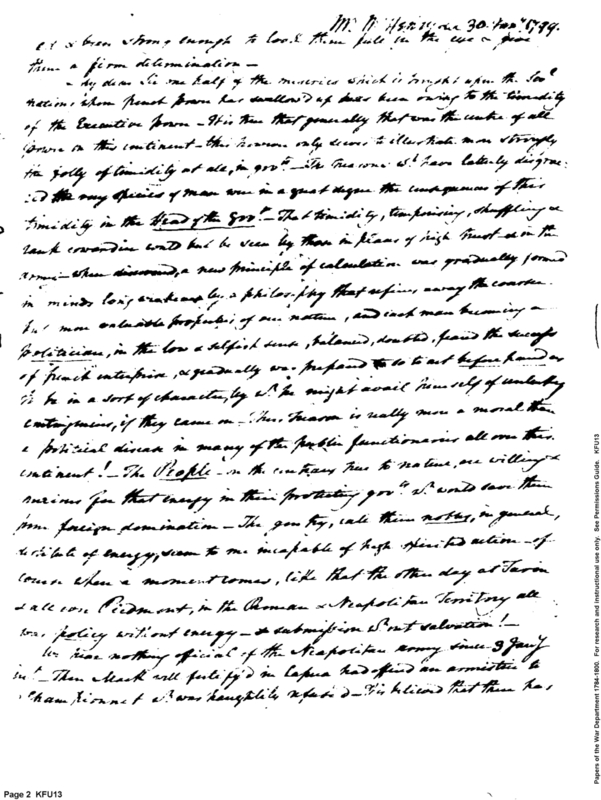 Mr. McHenry dated 30. Jany. 1799.
& been strong enough to look them full in the eye & give
them a firm determination —
— My dear Sir one half of the miseries which is brought upon the sevl.
nations whom french power has swallow'd up has been owing to the timidity
of the Executive power — It is true that generally that was the centre of all
power on this continent — this however only serves to illustrate more strongly
the folly of timidity at all, in govt. — The treasons wh. have latterly disgra-
ced the very species of man were in a great degree the consequences of this
timidity in the Head of the Govt. — That timidity, temporising, shuffling &
rank cowardice could but be seen by those in places of high trust & in the
armies — when discovered, a new principle of calculation was gradually formed
in minds long weakened by a philosophy that refines away the coarser
but more valuable properties of our nature, and each man becoming a
politician, in the low & selfish sense, balanced, doubted, feared the success
of french enterprise, & gradually was prepared so to act before hand as
to be in a sort of character, by wh. he might avail himself of unlucky
contingencies, if they came on — This Treason is really more a moral than
a political disease in many of the public functionaries all over this
continent! — The People on the contrary true to nature, are willing &
anxious for that energy in their protecting govts. wh. would save them
from foreign domination — The gentry, call them nobles, in general,
destitute of energy, seem to me incapable of high spirited action — of
course when a moment comes, like that the other day at Turin
& all over Piedmont, in the Roman & Neapolitan Territory all
was policy without energy — & submission wthout salvation! —
We hear nothing official of the Neapolitan army since 3 Jany
inst. — Then Mack well fortify'd in Capua had offered an armistice to
Championnet wh. was haughtily refused — Tis believed that there has
Page 2 KFU13
Papers of the War Department 1784-1800. For research and instructional use only. See Permissions Guide. KFU13